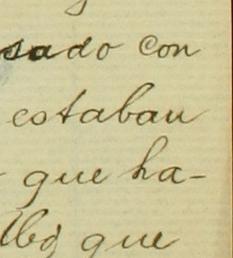 sado con
estaban
que ha-
que